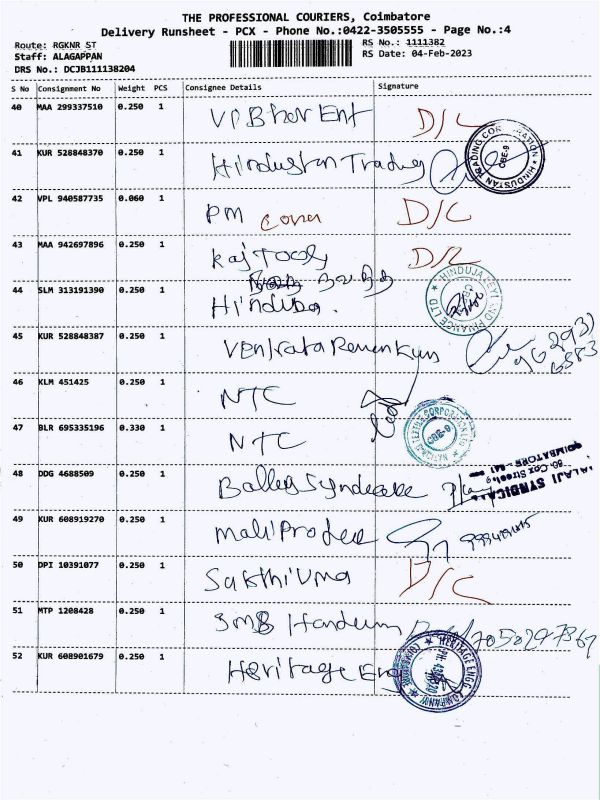 THE PROFESSIONAL COURIERS, Coimbatore
Delivery Runsheet - PCX - Phone No.:0422-3505555 - Page No.:4
Route: RGKNR ST
RS No.: 1111382
Staff: ALAGAPPAN
RS Date: 04-Feb-2023
DRS No.: DCJB111138204
S No Consignment No Weight PCS Consignee Details Signature
40 MAA 299337510 0.250 1 Ent D/C
41 KUR 528848370 0.250 1 Hindustan Trading HINDUSTAN TRADING CORPORATION CBE-9
42 VPL 940587735 0.060 1 PM cover D/C
43 MAA 942697896 0.250 1 D/C
44 SLM 313191390 0.250 1 Hinduja. HINDUJA LEYLAND FINANCE LTD
45 KUR 528848387 0.250 1
46 KLM 451425 0.250 1 NTC
47 BLR 695335196 0.330 1 NTC TEXTILE CORPORATION LTD CBE-9
48 DDG 4688509 0.250 1 BALAJI SYNDICA
COIMBATORE
49 KUR 608919270 0.250 1
50 DPI 10391077 0.250 1 Sakthi Uma D/C
51 MTP 1208428 0.250 1
52 KUR 608901679 0.250 1 Heritage Eng HERITAGE ENGG COMPANY